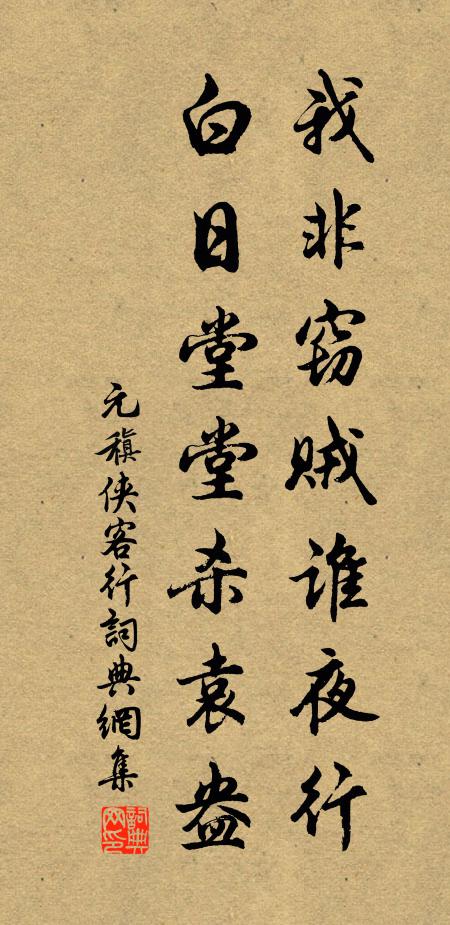 我非窃贼谁夜行
白日堂堂杀袁盎
元稹侠客行詞典網集
詞典网印